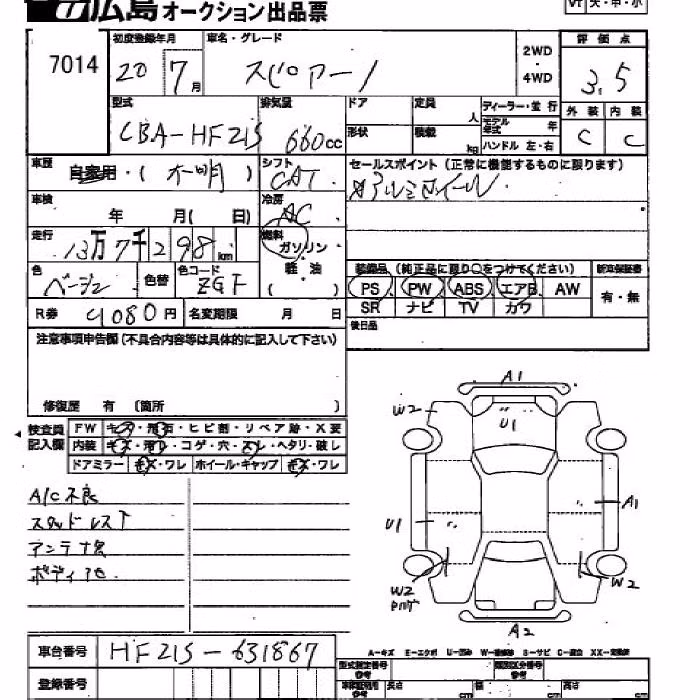 広島オークション出品票
VT 大・中・小
7014
初度登録年月
20 7月
車名・グレード
スピアーノ
2WD・4WD
評価点
3.5
型式
CBA-HF21S
排気量
660cc
ドア
形状
定員 人
積載 kg
ディーラー・並行
モデル年式 年
ハンドル 左・右
外装 内装
C C
車歴
自家用・( 不明 )
シフト
CAT
セールスポイント(正常に機能するものに限ります)
アルミホイール
車検
年 月( 日)
冷房
AC
走行
13万7千298km
燃料
ガソリン
軽油
( )
色
ベージュ
色替
色コード
ZGF
装備品(純正品に限り○をつけてください)
PS PW ABS エアB AW
SR ナビ TV カワ
新車保証書
有・無
R券
9080円
名変期限 月 日
後日品
注意事項申告欄(不具合内容等は具体的に記入して下さい)
修復歴 有 〔箇所 〕
検査員記入欄
FW キズ・飛石・ヒビ割・リペア跡・X変
内装 キズ・汚レ・コゲ・穴・スレ・ヘタリ・破レ
ドアミラー キズ・ワレ ホイール・キャップ キズ・ワレ
A/C不良
スタッドレス下
アンテナ欠
ボディ色
A1
W2
U1
A1
U1
W2
W2
A2
A-キズ E-エクボ U-凹み W-補修跡 S-サビ C-腐蝕 XX-交換済
車台番号
HF21S-631867
登録番号
型式指定番号
類別区分番号
長さ cm 幅 cm 高さ cm